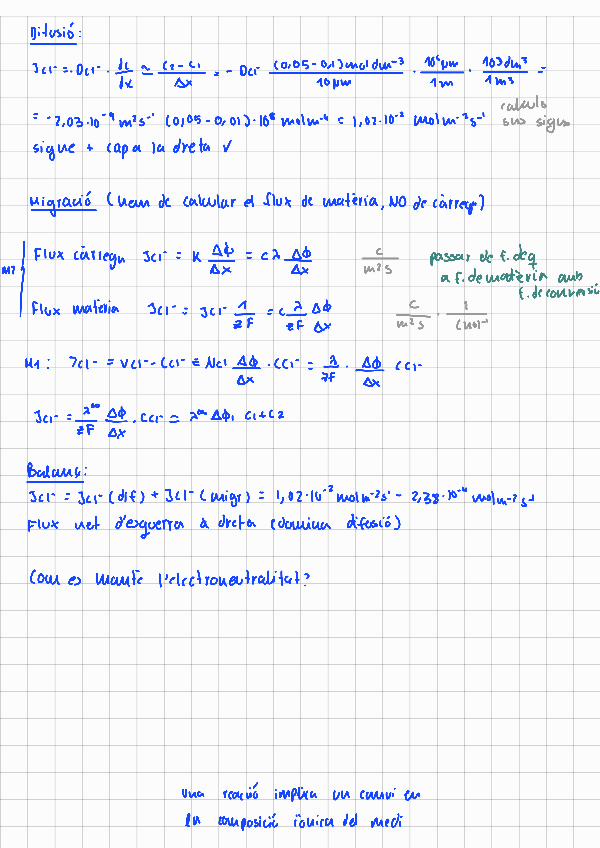 Difusió:
Jcl⁻ = - Dcl⁻ · dc/dx ≃ c₂-c₁/Δx = - Dcl⁻ (0,05-0,1) mol dm⁻³/10 µm · 10⁶ µm/1 m · 10³ dm³/1 m³ =
= -2,03·10⁻⁹ m² s⁻¹ (0,05-0,01)·10⁸ mol m⁻⁴ = 1,02·10⁻² mol m⁻² s⁻¹
calculo
sus signe
signe + cap a la dreta ✓
Migració (hem de calcular el flux de matèria, NO de càrrega)
M2
Flux càrrega Jcl⁻ = K Δϕ/Δx = c λ Δϕ/Δx
C/m² s
passar de f. de q
a f. de matèria amb
f. de conversió
Flux matèria Jcl⁻ = Jcl⁻ 1/zF = c λ/zF Δϕ/Δx
C/m² s · 1/C mol⁻¹
M1: Jcl⁻ = vcl⁻ · Ccl⁻ = Ncl Δϕ/Δx · Ccl⁻ = λ/zF · Δϕ/Δx ccl⁻
Jcl⁻ = λ∞/zF Δϕ/Δx · Ccl⁻ = λ∞ Δϕ, c₁+c₂
Balanç:
Jcl⁻ = Jcl⁻ (dif) + Jcl⁻ (migr) = 1,02·10⁻² mol m⁻² s⁻¹ - 2,38·10⁻⁴ mol m⁻² s⁻¹
Flux net d'esquerra a dreta (domina difusió)
Com es manté l'electroneutralitat?
una reacció implica un canvi en
la composició iònica del medi